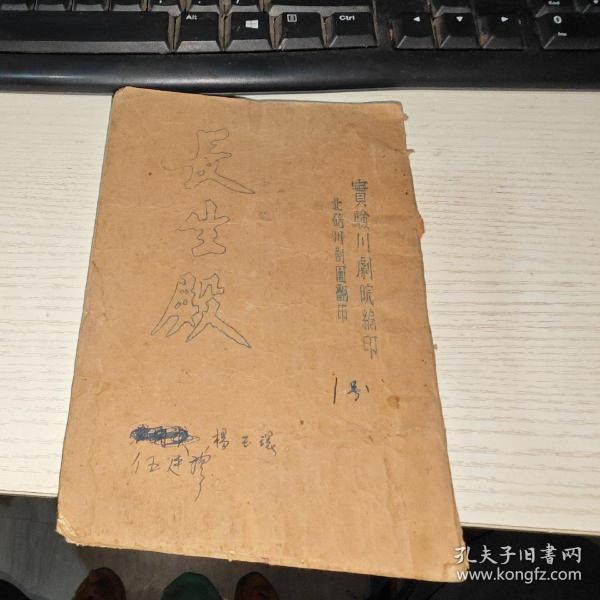 長生殿
實驗川劇院編印
北碚川劇團翻印
1号
楊玉環
伍廷
孔夫子旧书网
www.kongfz.com
Alt
Ctrl